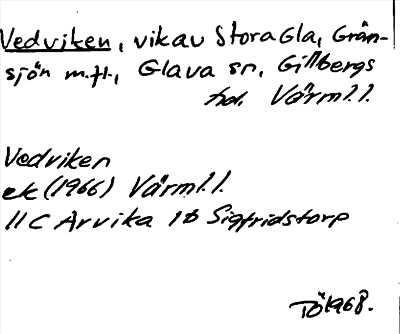 Vedviken, vik av Stora Gla, Grän-
sjön m.fl., Glava sn, Gillbergs
hd. Värml.l.
Vedviken
ek (1966) Värml.l.
11C Arvika 1b Sigfridstorp
TÖ 1968.